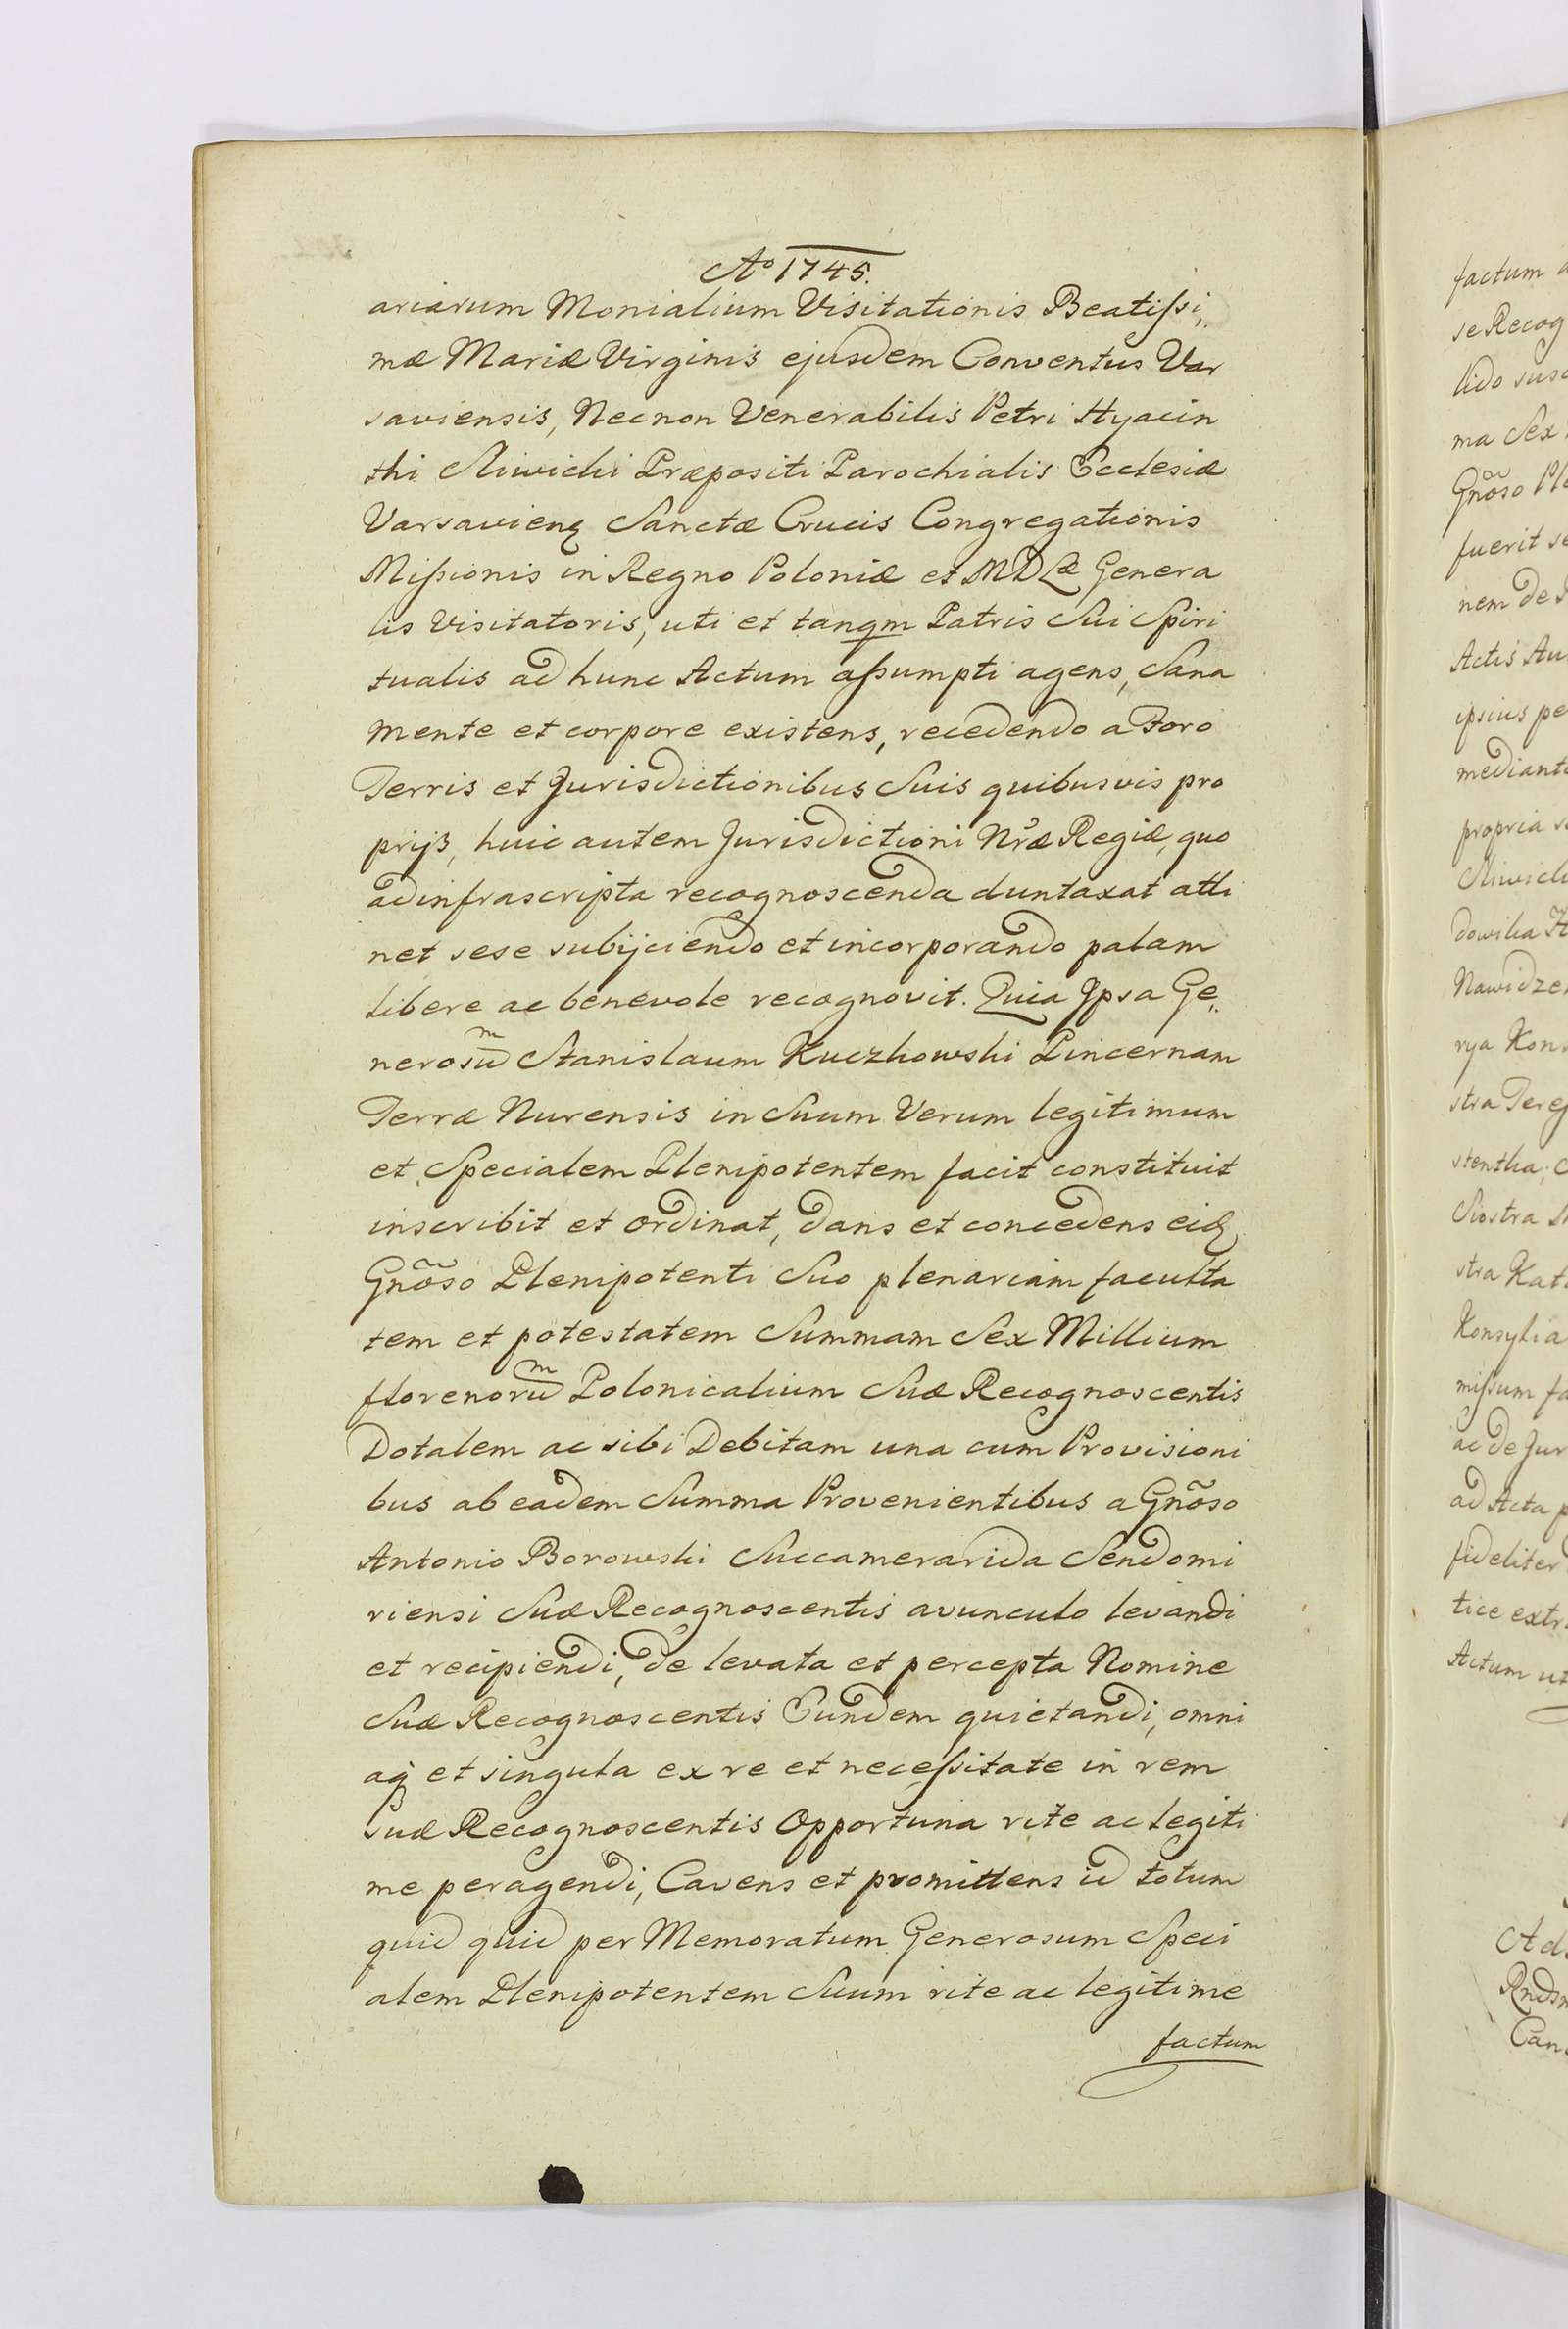 Aº 1745.
ariarum Monialium Visitationis Beatiſsi„
mæ Mariæ Virginis ejusdem Conventus Var
saviensis, Necnon Venerabilis Petri Hyacin
thi Sliwicki Præpositi Parochialis Ecclesiæ
Varsavienę Sanctæ Crucis Congregationis
Miſsionis in Regno Poloniæ et MDLæ Genera
lis Visitatoris, uti et tanqm Patris Sui Spiri
tualis ad hunc Actum aſsumpti agens, Sana
mente et corpore existens, recedendo a Foro
Terris et Jurisdictionibus Suis quibusvis pro
prijs, huic autem Jurisdictioni Nræ Regiæ, quo
ad infrascripta recognoscenda duntaxat atti
net sese subijciendo et incorporando palam
libere ac benevole recognovit. Quia Ipsa Ge„
nerosum Stanislaum Kuczkowski Pincernam
Terræ Nurensis in Suum Verum legitimum
et Specialem Plenipotentem facit constituit
inscribit et ordinat, dans et concedens eidę
Gnõso Plenipotenti Suo plenariam faculta
tem et potestatem Summam Sex Millium
florenorum Polonicalium Suæ Recognoscentis
Dotalem ac sibi Debitam una cum Provisioni
bus ab eadem Summa Provenientibus a Gnõso
Antonio Borowski Succamerarida Sendomi
riensi Suæ Recognoscentis avunculo levandi
et recipiendi, de levata et percepta Nomine
Suæ Recognoscentis Eundem quietandi, omni
aq et singula ex re et neceſsitate in rem
suæ Recognoscentis Opportuna rite ac legiti
me peragendi, Cavens et promittens id totum
quid quid per Memoratum Generosum Speci
alem Plenipotentem Suum rite ac legitime
factum
factum
se Recog
lido
ma Sex
Gnõso
fuerit
nem de
Actis
ipsius
mediante
propria
Sliwick
Nawidze
rya
stra
stra
Konsylia
miſsum
ac de Jur
ad Acta
fideliter
tice extr
Actum ut